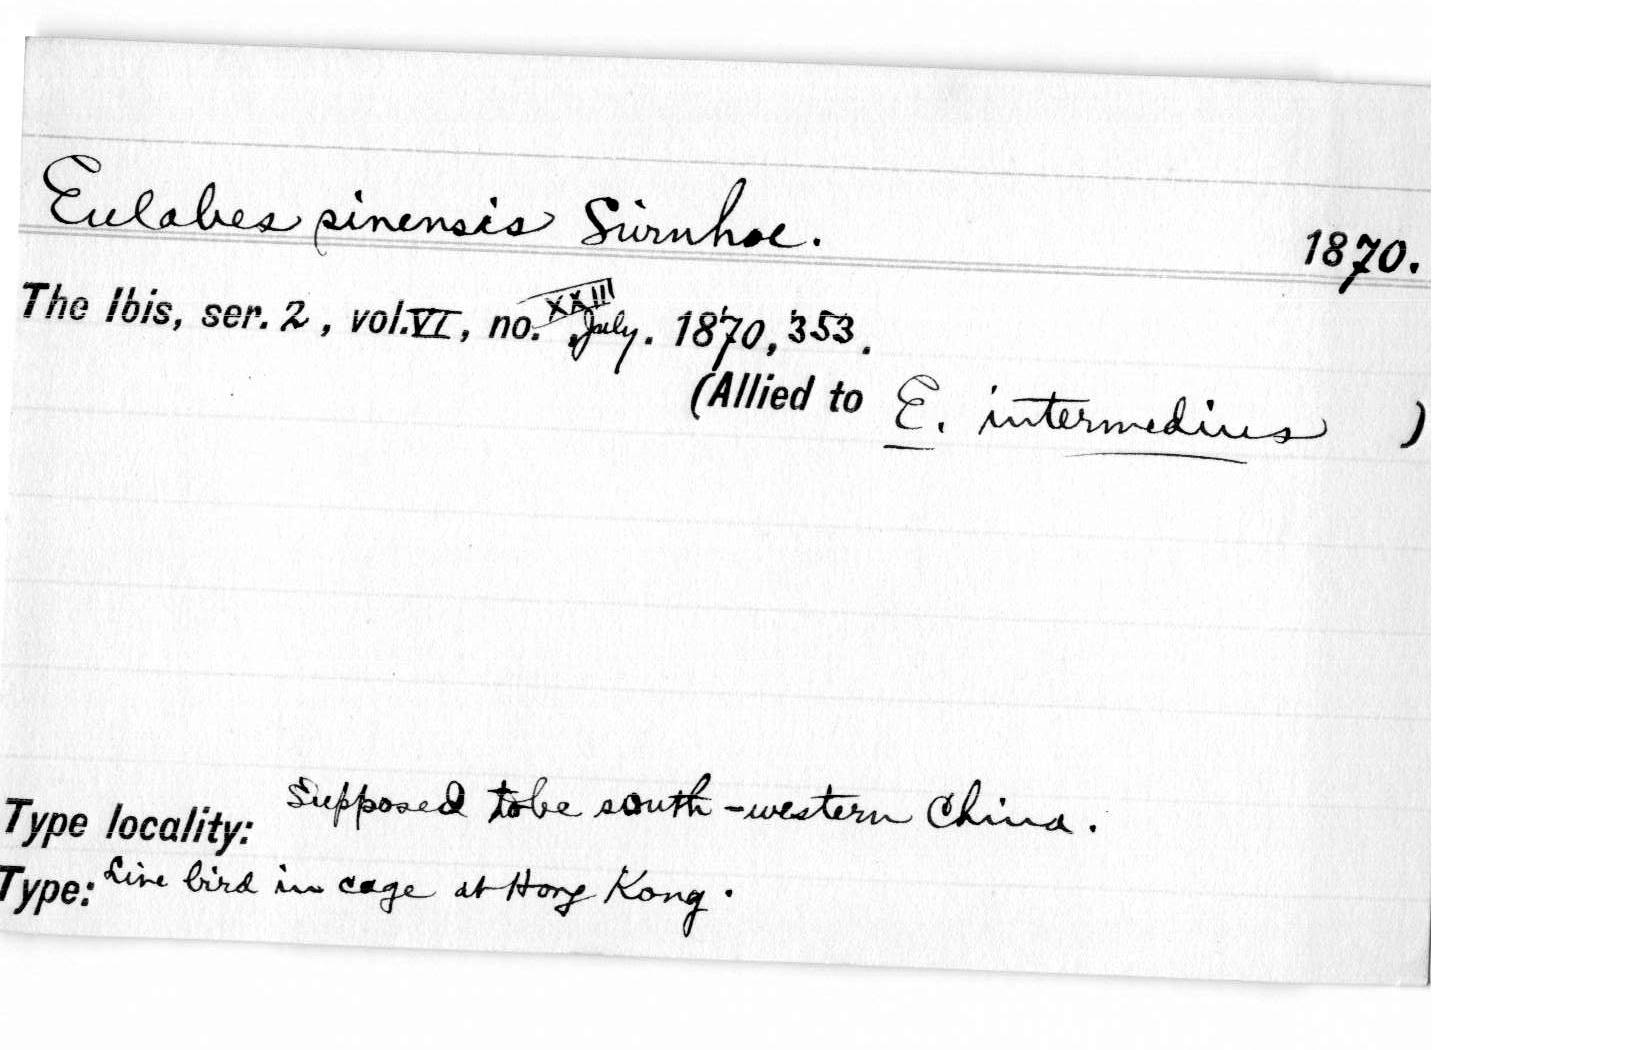 Eulabes sinensis Swinhoe. 1870.
The Ibis, ser. 2, vol. VI, no. XXIII, July. 1870, 353.
(Allied to E. intermedius )
Type locality: Supposed to be south-western China.
Type: Live bird in cage at Hong Kong.